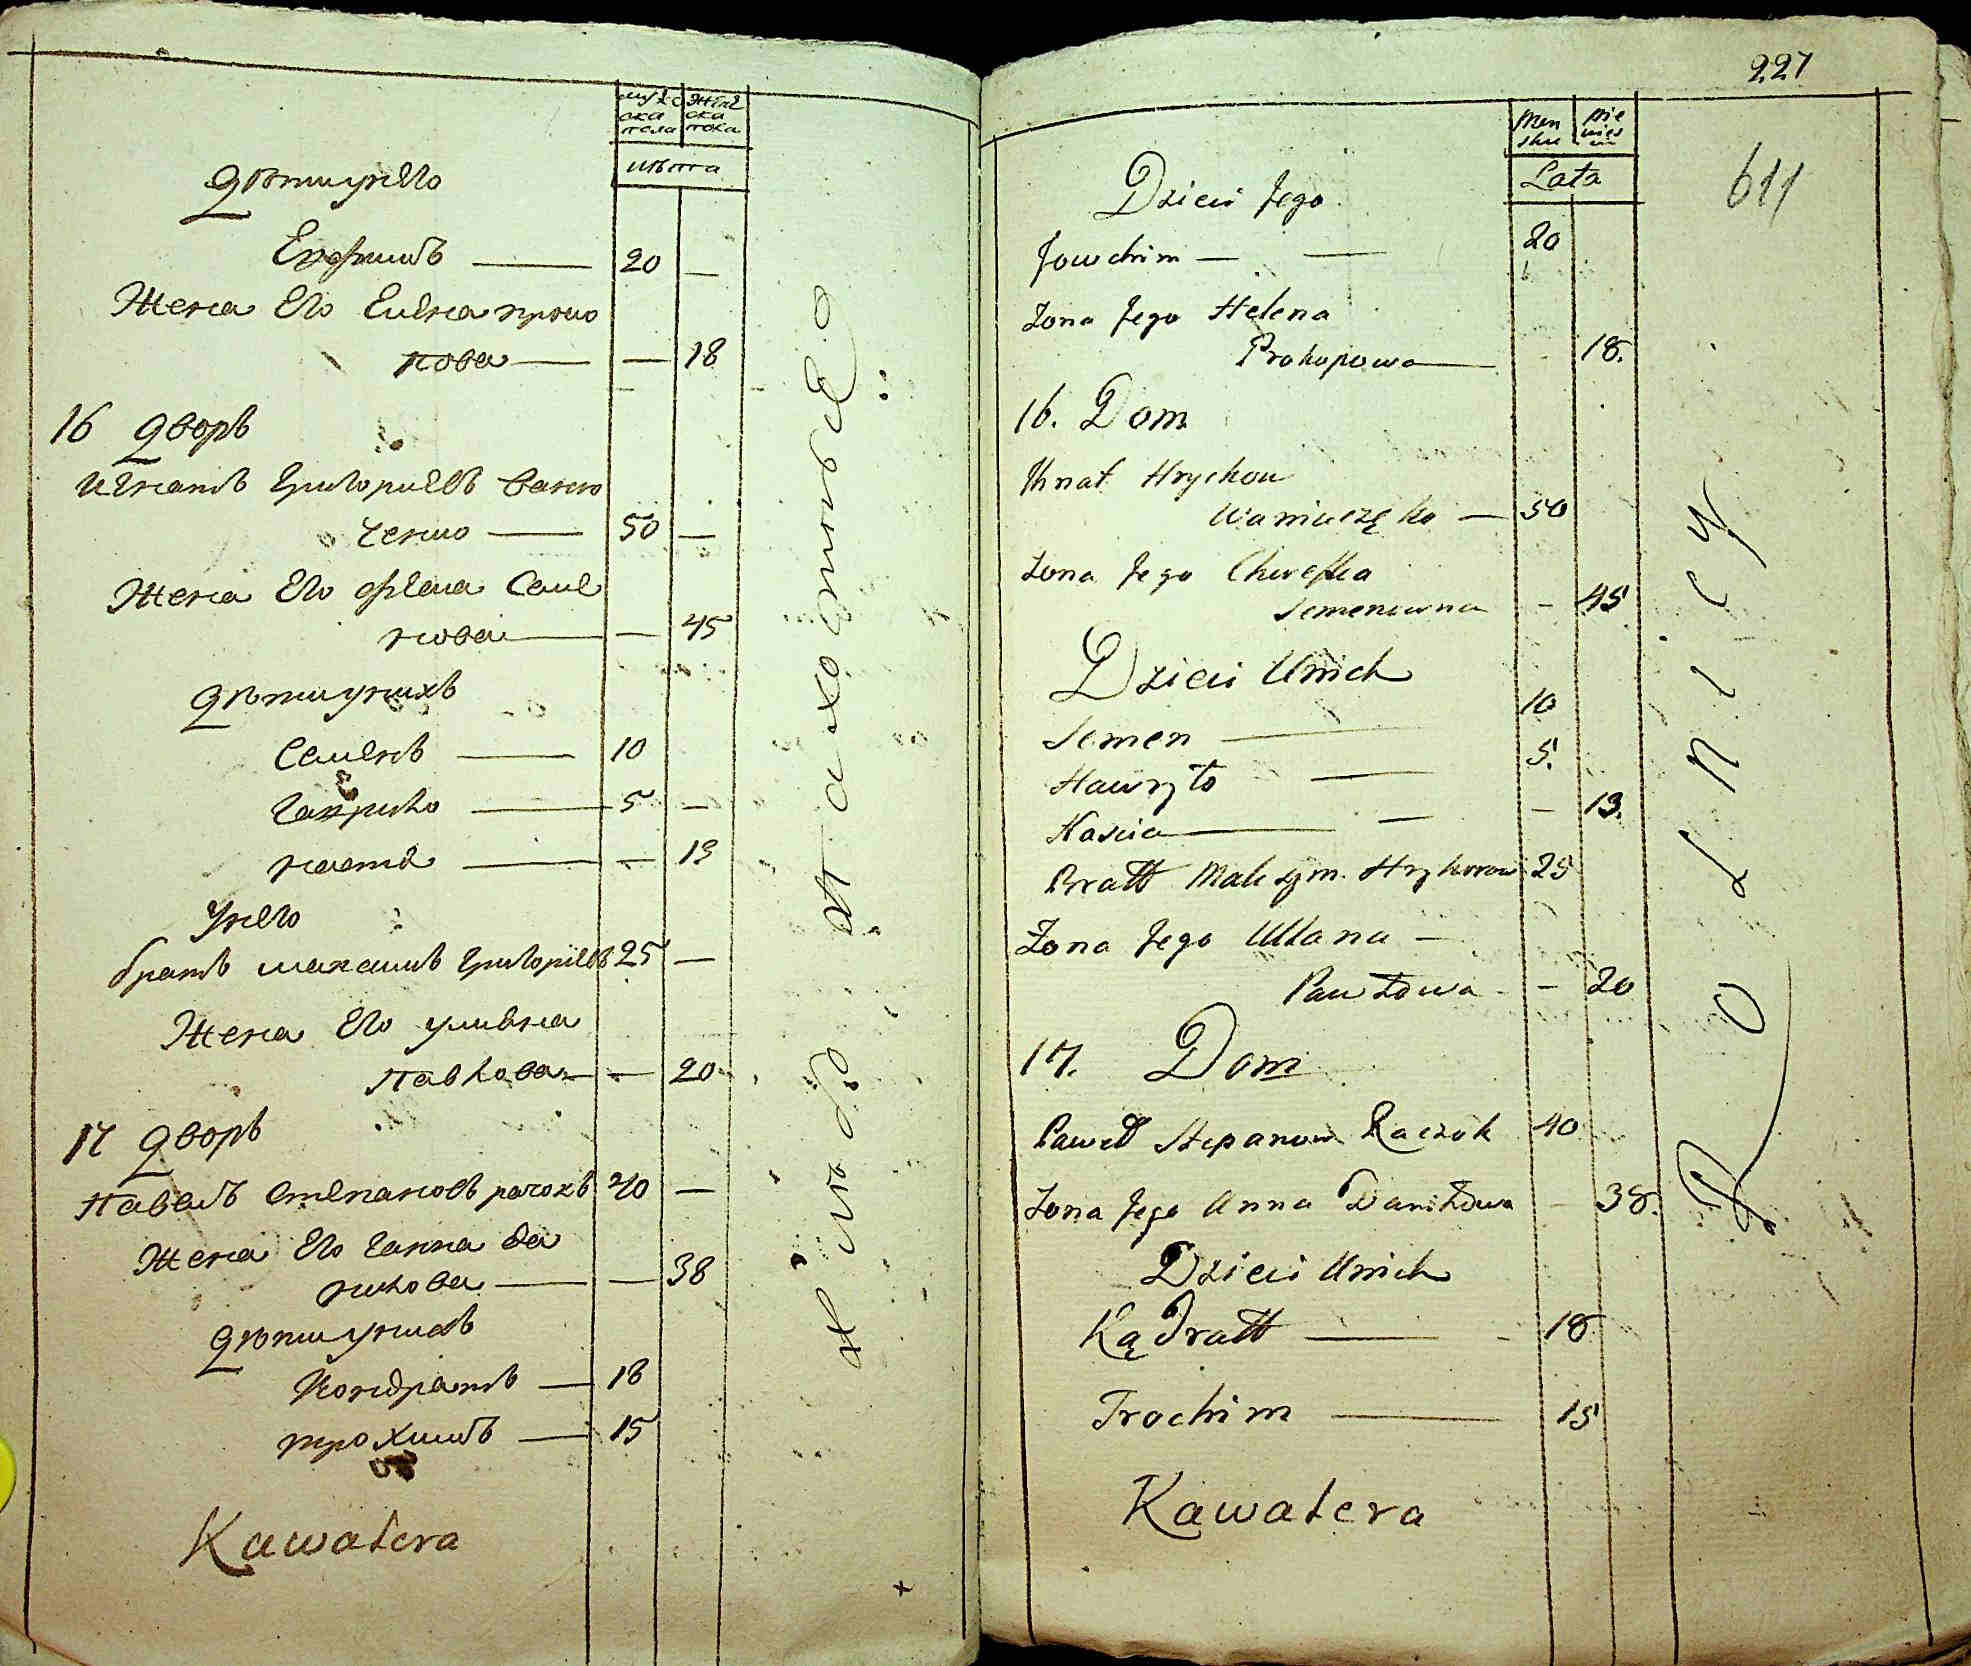 мужеска пола
женска пола
лѣта
Дѣти у него
Ефимъ — 20 —
Жена Его Елена прко
пова — — 18
16 дворъ
Игнатъ Григориевъ ваню
ченко — 50 —
Жена Его Семе
нова — — 45
Дѣти у нихъ
Семенъ — 10
Гаврило — 5 —
настя — — 13
У него
братъ максимъ Григориевъ 25 —
Жена Его улияна
Павлова — — 20
17 дворъ
Павелъ Степановъ рачокъ 40 —
Жена Его Ганна да
нилова — — 38
Дѣти у нихъ
Кондратъ — 18
трохимъ — 15
Kawalera
227
611
Men
skie
Lata
Dzieci Jego
Jowchim — — 20
Zona Jego Helena
Prokopowa — 18.
16. Dom
Ihnat Hryhow
Waniuczęko — 50
Zona Jego
Semenowna — 45
Dzieci Unich
Semen — 10
Hawryło — 5.
Nascia — — — 13.
Bratt Maksym Hryhorow 25
Zona Jego Ullana —
Pawłowa — 20
17. Dom
Paweł Stepanow Raczok 40
Zona Jego Anna Daniłowa — 38.
Dzieci Unich
Kądratt — 18
Trochim — 15
Kawalera
Rolnicy